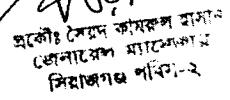 প্রকৌঃ সৈয়দ কামরুল হাসান
জেনারেল ম্যানেজার
সিরাজগঞ্জ পবিস-২